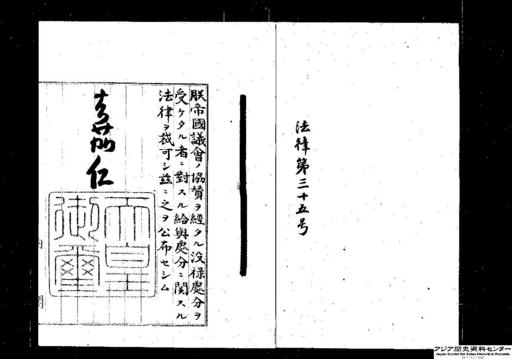 法律第三十五号
朕帝國議會ノ協贊ヲ經タル沒祿處分ヲ
受ケタル者ニ對スル給與處分ニ關スル
法律ヲ裁可シ茲ニ之ヲ公布セシム
嘉仁
天皇
御璽
アジア歴史資料センター
Japan Center for Asian Historical Records